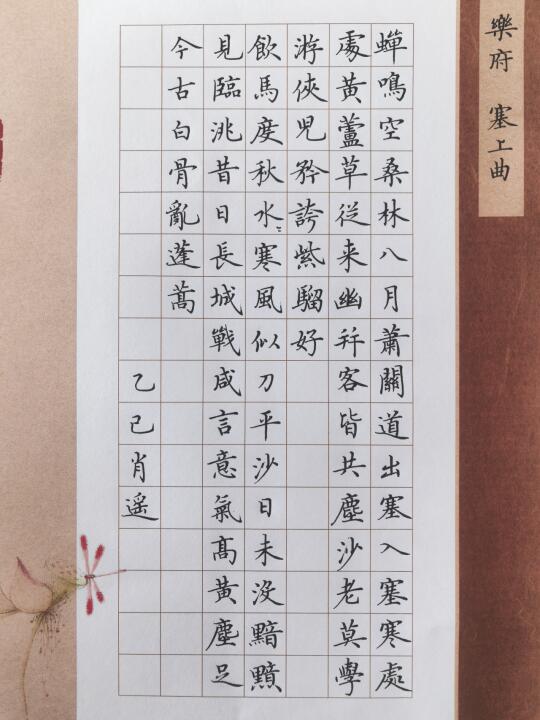 樂府 塞上曲
蟬鳴空桑林八月蕭關道出塞入塞寒處
處黃蘆草從来幽并客皆共塵沙老莫學
游俠児矜誇紫騮好
飲馬度秋水〻寒風似刀平沙日未没黯
見臨洮昔日長城戰咸言意氣高黃塵足
今古白骨亂蓬蒿
乙巳肖遥